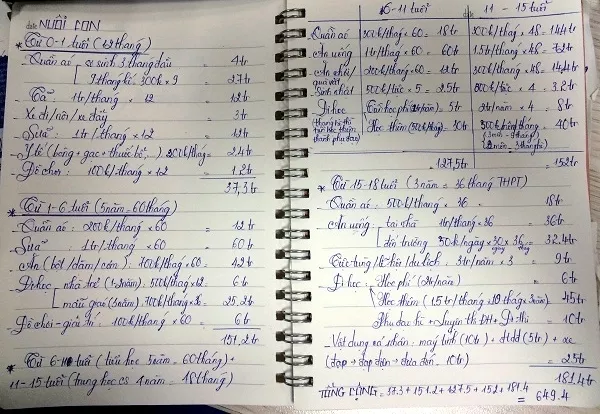 NUÔI CON
* Từ 0-1 tuổi (12 tháng)
- Quần áo: sơ sinh 3 tháng đầu = 4tr
9 tháng kế: 300k x 9 = 2.7tr
- Tã 1tr/tháng x 12 = 12tr
- Xe đi/nôi/xe đẩy = 3tr
- Sữa: 1tr/tháng x 12 = 12tr
- Y tế (bông + gạc + thuốc bổ,...) 200k/tháng = 2.4tr
- Đồ chơi: 100k/tháng x 12 = 1.2tr
37,3tr
* Từ 1-6 tuổi (5 năm = 60 tháng)
- Quần áo: 200k/tháng x 60 = 12tr
- Sữa: 1tr/tháng x 60 = 60tr
- Ăn (bột/dặm/cơm) 700k/tháng x 60 = 42tr
- Đi học: nhà trẻ (1-2 năm) 500k/tháng x 12 = 6tr
mẫu giáo (3 năm) 700k/tháng x 36 = 25.2tr
- Đồ chơi - giải trí: 100k/tháng x 60 = 6tr
151,2tr
* Từ 6-11 tuổi (tiểu học 5 năm = 60 tháng) +
11-15 tuổi (trung học cs 4 năm = 48 tháng)
6-11 tuổi 11-15 tuổi
Quần áo 300k/tháng x 60 = 18tr 300k/tháng x 48 = 14.4tr
Ăn uống 1tr/tháng x 60 = 60tr 1.5tr/tháng x 48 = 72tr
Ăn chơi/quà vặt 200k/tháng x 60 = 12tr 300k/tháng x 48 = 14.4tr
Sinh nhật 500k/tuổi x 5 = 2.5tr 800k/tuổi x 4 = 3.2tr
Đi học Học phí 5tr 2tr/năm x 4 = 8tr
Học thêm (500k/tháng) 30tr 40tr
127,5tr = 152tr
* Từ 15-18 tuổi (3 năm = 36 tháng THPT)
- Quần áo: 500k/tháng x 36 = 18tr
- Ăn uống: tại nhà 1tr/tháng x 36 = 36tr
đến trường 30k/ngày x 30 ngày x 36 tháng = 32.4tr
lễ hội/du lịch: 3tr/năm x 3 = 9tr
- Đi học: Học phí (2tr/năm) = 6tr
Học thêm (1.5tr/tháng x 10 tháng x 3 năm) 45tr
+ luyện thi ĐH + = 10tr
- Vật dụng cá nhân: máy tính (10tr) + dtdd (5tr) + xe
(đạp → đạp điện → 10tr) = 25tr
181.4tr
TỔNG CỘNG = 37.3 + 151.2 + 127.5 + 152 + 181.4
= 649.4